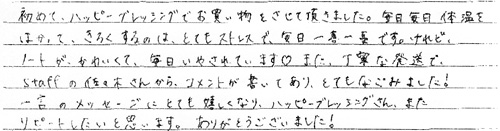 初めて、ハッピーブレッシングでお買い物をさせて頂きました。毎日毎日体温を
はかって、きろくするのは、とてもストレスで、毎日一喜一憂です。けれど、
ノートが、かわいくて、毎日いやされています♡また、丁寧な発送で、
staffの佐々木さんから、コメントが書いてあり、とてもなごみました！
一言のメッセージにとても嬉しくなり、ハッピーブレッシングさん、また
リピートしたいと思います。ありがとうございました！